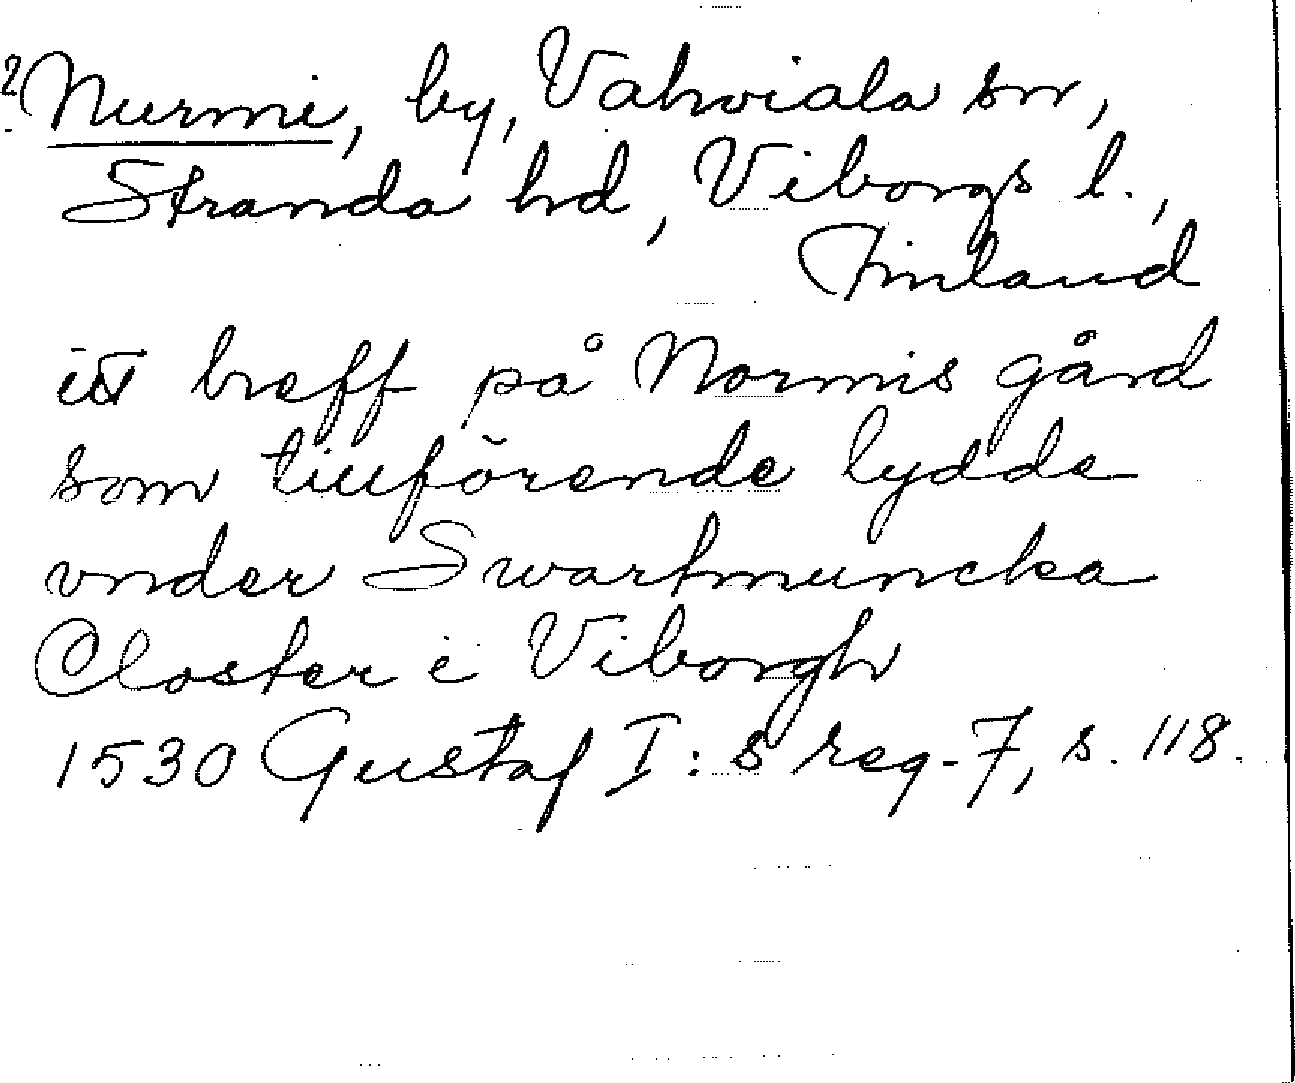 ? Nurmi, by, Vahviala sn,
Stranda hd, Viborgs l.,
Finland
itt breff på Normis gård
som tillförende lydde
vnder Swartmuncka
Closter i Viborgh
1530 Gustaf I:s reg. 7, s. 118.